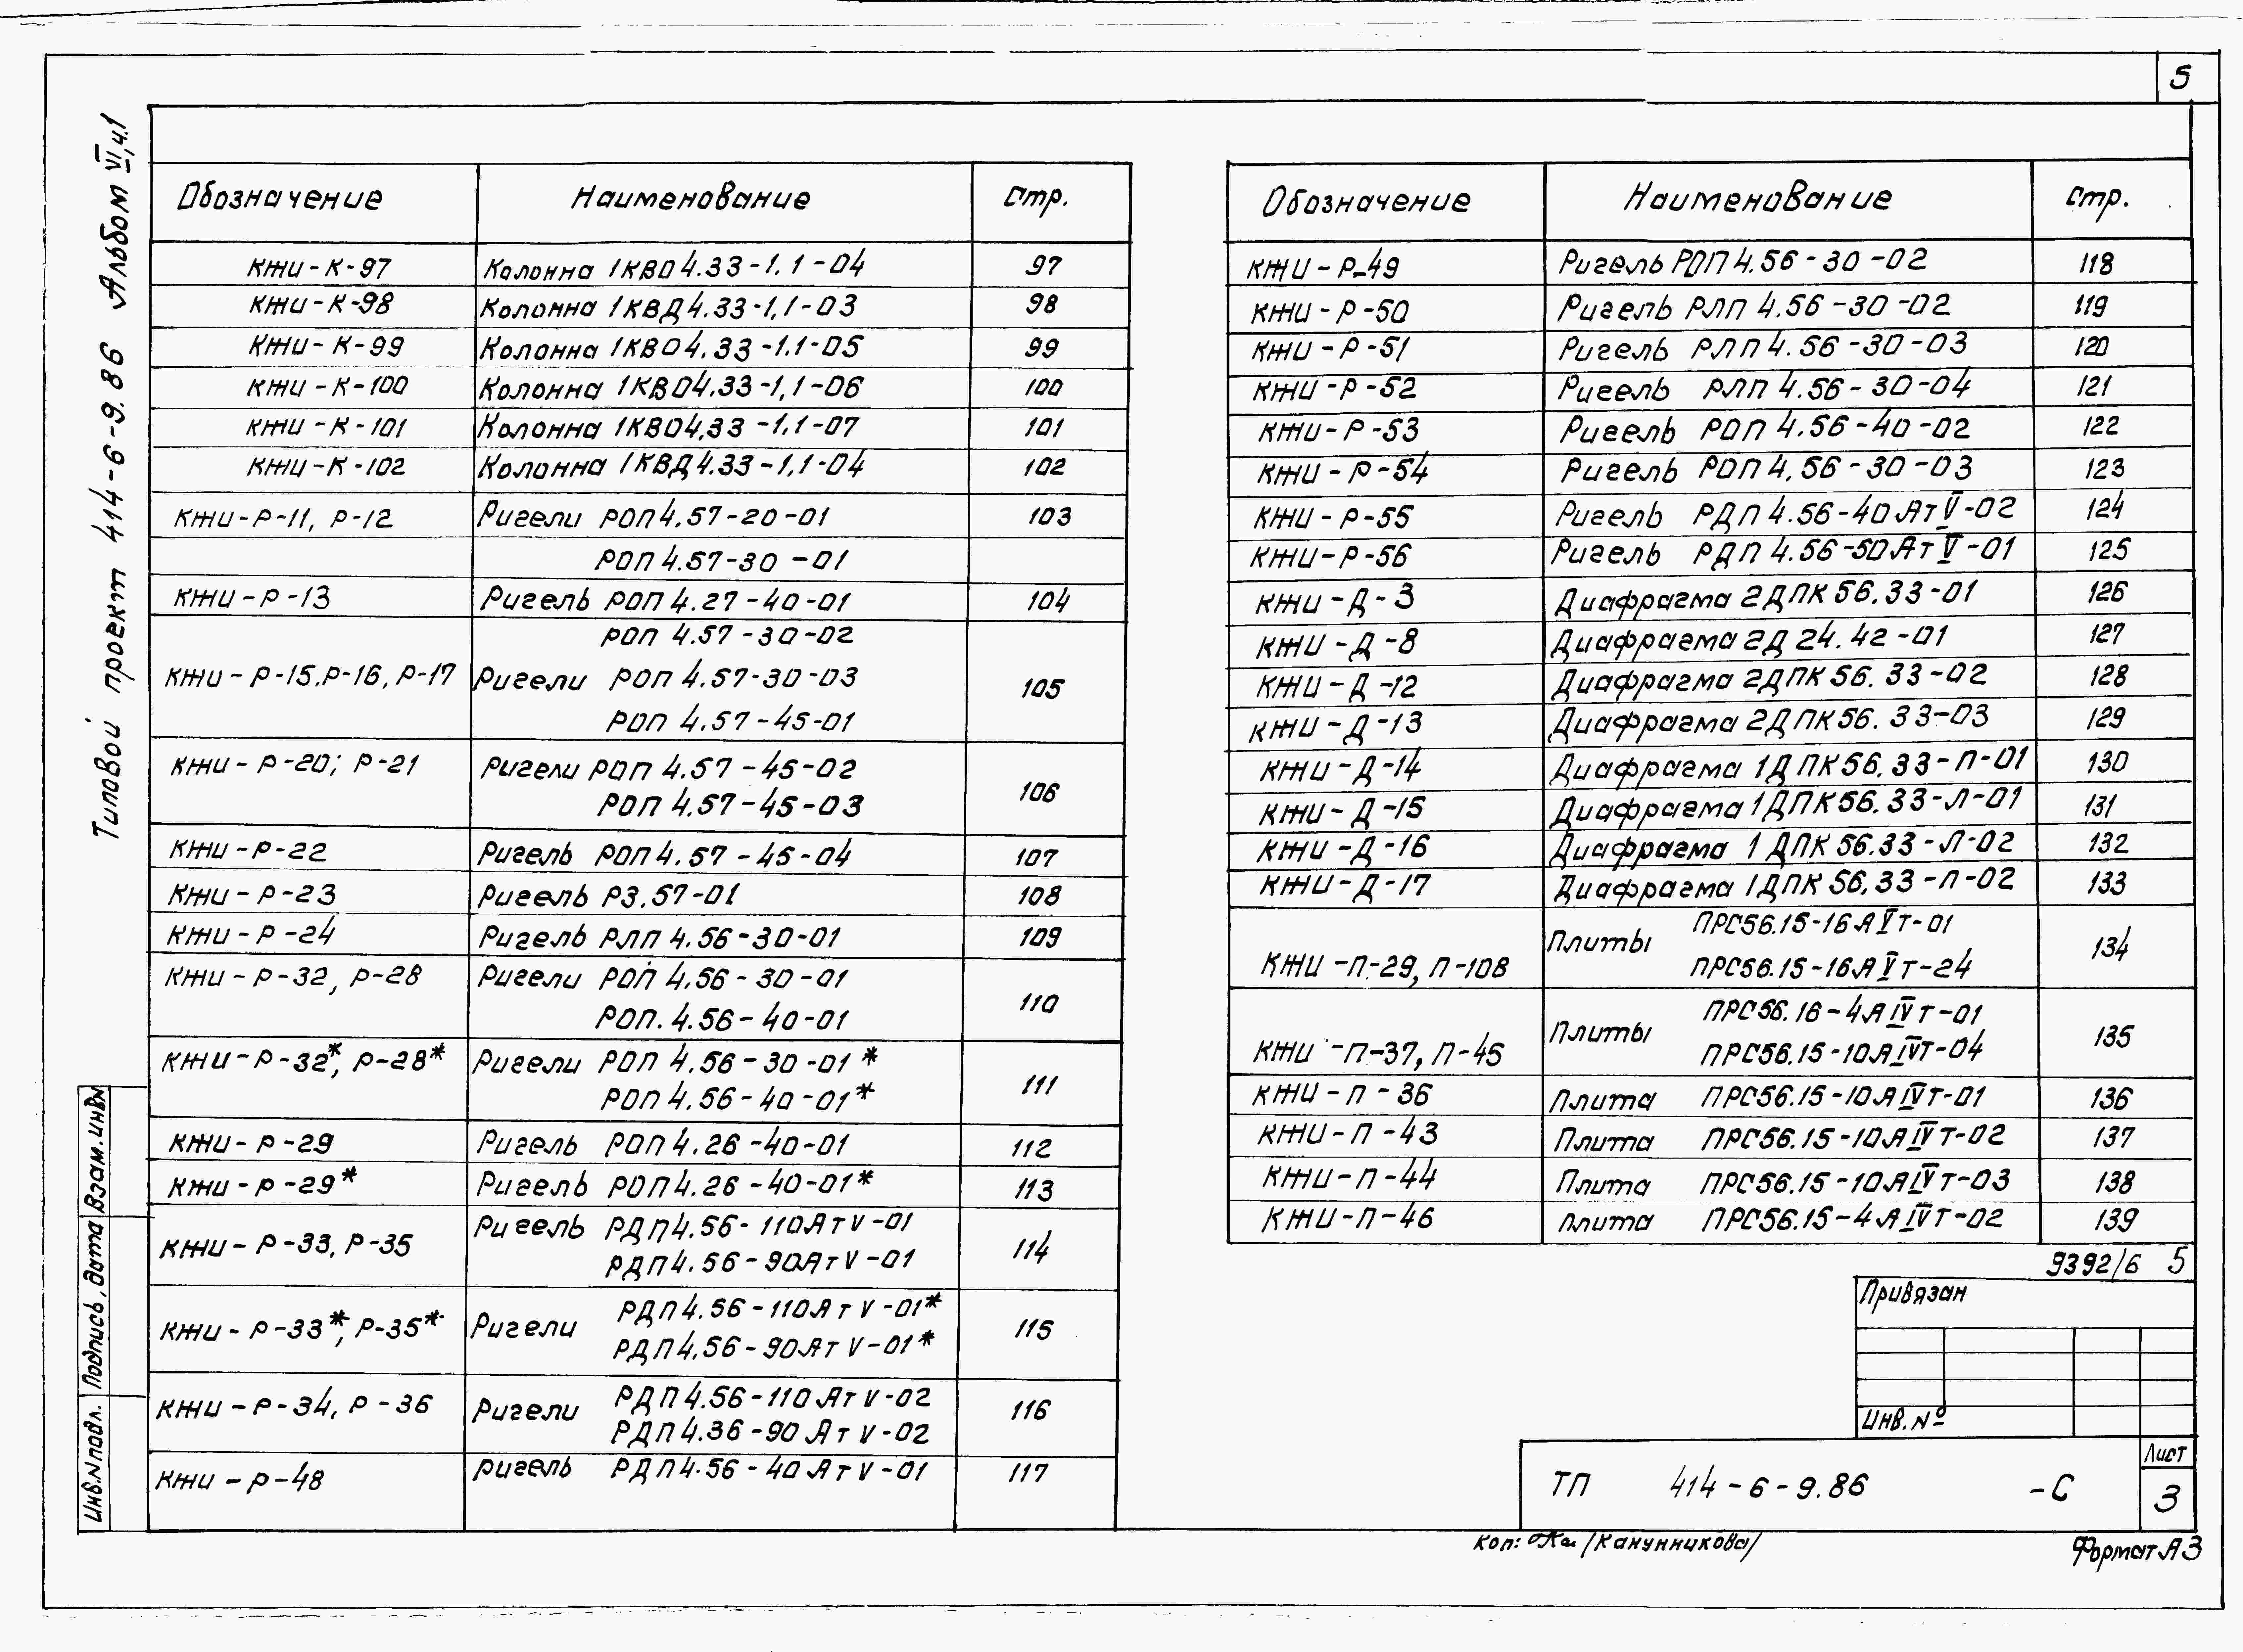 5
Типовой проект 414-6-9.86 Альбом VI, ч.1
Обозначение Наименование Стр.
КЖИ-К-97 Колонна 1КВО4.33-1.1-04 97
КЖИ-К-98 Колонна 1КВД4.33-1,1-03 98
КЖИ-К-99 Колонна 1КВО4.33-1.1-05 99
КЖИ-К-100 Колонна 1КВО4.33-1,1-06 100
КЖИ-К-101 Колонна 1КВО4.33-1.1-07 101
КЖИ-К-102 Колонна 1КВД4.33-1,1-04 102
КЖИ-Р-11, Р-12 Ригели РОП4.57-20-01 103
РОП4.57-30-01
КЖИ-Р-13 Ригель РОП4.27-40-01 104
РОП 4.57-30-02
КЖИ-Р-15,Р-16, Р-17 Ригели РОП 4.57-30-03 105
РОП 4.57-45-01
КЖИ-Р-20; Р-21 Ригели РОП 4.57-45-02
РОП 4.57-45-03 106
КЖИ-Р-22 Ригель РОП4.57-45-04 107
КЖИ-Р-23 Ригель Р3.57-01 108
КЖИ-Р-24 Ригель РЛП4.56-30-01 109
КЖИ-Р-32, Р-28 Ригели РОП 4.56-30-01
РОП.4.56-40-01 110
КЖИ-Р-32*, Р-28* Ригели РОП 4.56-30-01*
РОП 4.56-40-01* 111
КЖИ-Р-29 Ригель РОП4.26-40-01 112
КЖИ-Р-29* Ригель РОП4.26-40-01* 113
КЖИ-Р-33, Р-35 Ригель РДП4.56-110АтV-01
РДП4.56-90АтV-01 114
РДП4.56-110АтV-01*
КЖИ-Р-33*, Р-35* Ригели 115
РДП4.56-90АтV-01*
РДП4.56-110АтV-02
КЖИ-Р-34, Р-36 Ригели 116
РДП4.36-90АтV-02
КЖИ-Р-48 Ригель РДП4.56-40АтV-01 117
Обозначение Наименование Стр.
КЖИ-Р-49 Ригель РОП4.56-30-02 118
КЖИ-Р-50 Ригель РЛП 4.56-30-02 119
КЖИ-Р-51 Ригель РЛП4.56-30-03 120
КЖИ-Р-52 Ригель РЛП 4.56-30-04 121
КЖИ-Р-53 Ригель РОП 4.56-40-02 122
КЖИ-Р-54 Ригель РОП4.56-30-03 123
КЖИ-Р-55 Ригель РДП4.56-40АтV-02 124
КЖИ-Р-56 Ригель РДП 4.56-50АтV-01 125
КЖИ-Д-3 Диафрагма 2ДПК56.33-01 126
КЖИ-Д-8 Диафрагма 2Д24.42-01 127
КЖИ-Д-12 Диафрагма 2ДПК56.33-02 128
КЖИ-Д-13 Диафрагма 2ДПК56.33-03 129
КЖИ-Д-14 Диафрагма 1ДПК56.33-П-01 130
КЖИ-Д-15 Диафрагма 1ДПК56.33-Л-01 131
КЖИ-Д-16 Диафрагма 1ДПК56.33-Л-02 132
КЖИ-Д-17 Диафрагма 1ДПК56.33-П-02 133
ПРС56.15-16АVт-01
Плиты 134
КЖИ-П-29, П-108 ПРС56.15-16АVт-24
ПРС56.16-4АIVт-01
Плиты 135
КЖИ-П-37, П-45 ПРС56.15-10АIVт-04
КЖИ-П-36 Плита ПРС56.15-10АIVт-01 136
КЖИ-П-43 Плита ПРС56.15-10АIVт-02 137
КЖИ-П-44 Плита ПРС56.15-10АIVт-03 138
КЖИ-П-46 Плита ПРС56.15-4АIVт-02 139
9392/6 5
Привязан
Инв.№
ТП 414-6-9.86 -С
Лист
3
Коп: /Канунникова/
Формат А3
Инв.N подл. Подпись, дата Взам.инвN